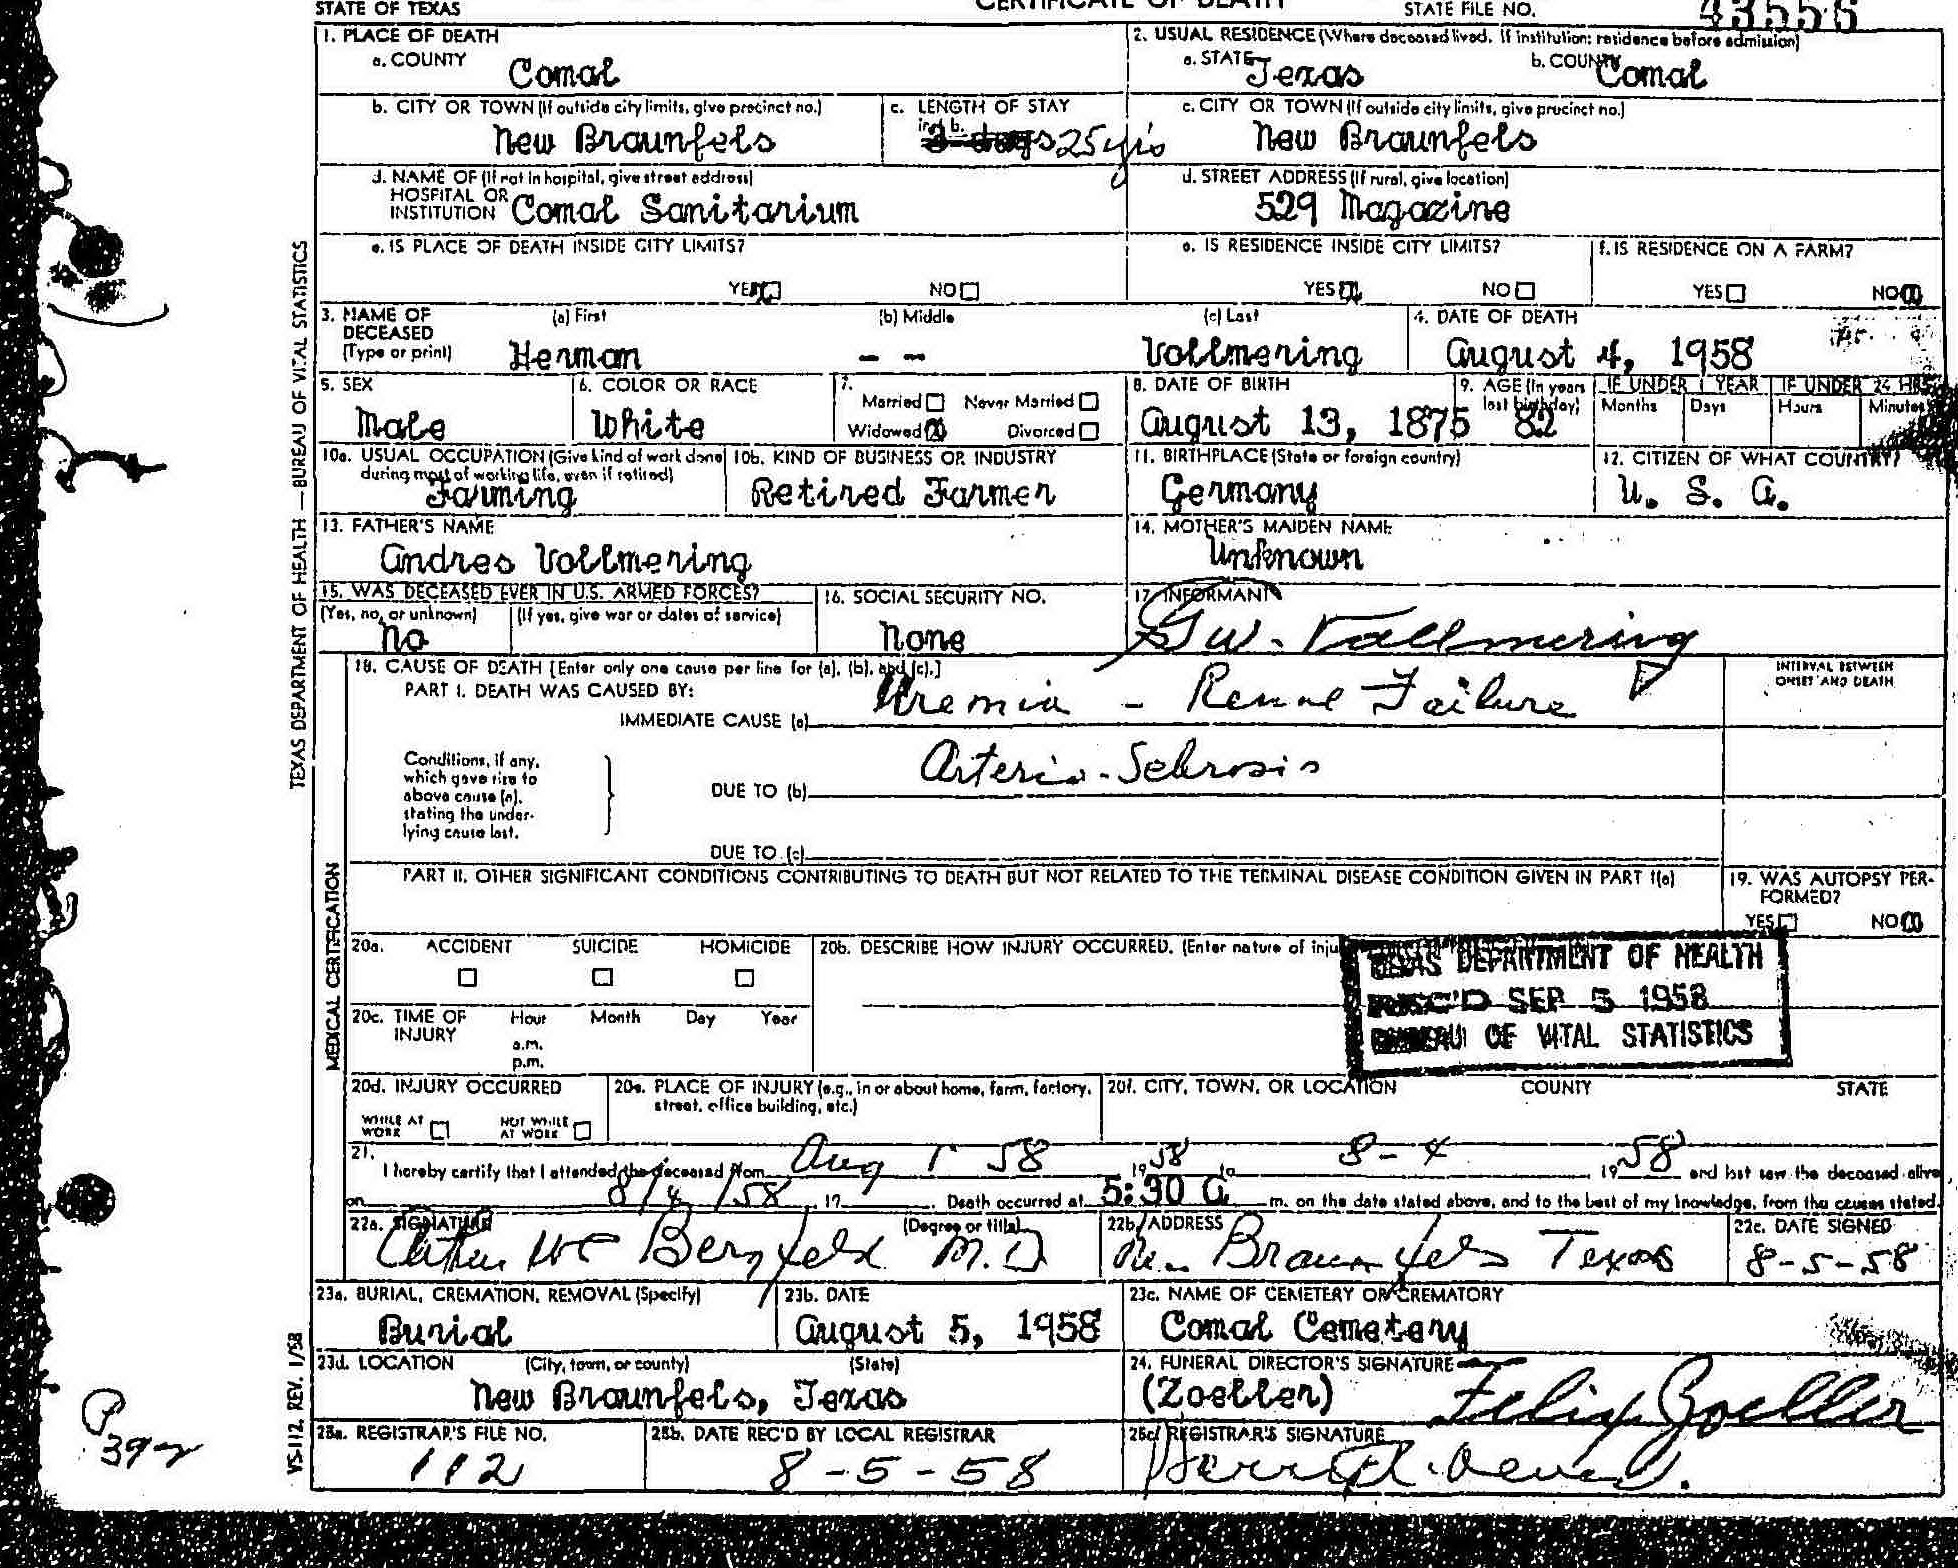 STATE OF TEXAS CERTIFICATE OF DEATH STATE FILE NO. 43556
1. PLACE OF DEATH
a. COUNTY Comal
2. USUAL RESIDENCE (Where deceased lived. If institution: residence before admission)
a. STATE Texas b. COUNTY Comal
b. CITY OR TOWN (If outside city limits, give precinct no.) New Braunfels
c. LENGTH OF STAY in 1b. 3 days 25 yrs
c. CITY OR TOWN (If outside city limits, give precinct no.) New Braunfels
d. NAME OF (If not in hospital, give street address) HOSPITAL OR INSTITUTION Comal Sanitarium
d. STREET ADDRESS (If rural, give location) 529 Magazine
e. IS PLACE OF DEATH INSIDE CITY LIMITS? YES NO
e. IS RESIDENCE INSIDE CITY LIMITS? YES NO
f. IS RESIDENCE ON A FARM? YES NO
3. NAME OF DECEASED (Type or print) (a) First Herman (b) Middle - - (c) Last Vollmering
4. DATE OF DEATH August 4, 1958
5. SEX Male
6. COLOR OR RACE White
7. Married Never Married Widowed Divorced
8. DATE OF BIRTH August 13, 1875
9. AGE (In years last birthday) 82
IF UNDER 1 YEAR Months Days
IF UNDER 24 HRS Hours Minutes
10a. USUAL OCCUPATION (Give kind of work done during most of working life, even if retired) Farming
10b. KIND OF BUSINESS OR INDUSTRY Retired Farmer
11. BIRTHPLACE (State or foreign country) Germany
12. CITIZEN OF WHAT COUNTRY? U. S. A.
13. FATHER'S NAME Andres Vollmering
14. MOTHER'S MAIDEN NAME Unknown
15. WAS DECEASED EVER IN U.S. ARMED FORCES? (Yes, no, or unknown) No (If yes, give war or dates of service)
16. SOCIAL SECURITY NO. None
17. INFORMANT G W. Vollmering
18. CAUSE OF DEATH [Enter only one cause per line for (a), (b), and (c).]
INTERVAL BETWEEN ONSET AND DEATH
PART I. DEATH WAS CAUSED BY:
IMMEDIATE CAUSE (a) Uremia - Renal Failure
Conditions, if any, which gave rise to above cause (a), stating the underlying cause last.
DUE TO (b) Arterio-Sclrosis
DUE TO (c)
PART II. OTHER SIGNIFICANT CONDITIONS CONTRIBUTING TO DEATH BUT NOT RELATED TO THE TERMINAL DISEASE CONDITION GIVEN IN PART I(a)
19. WAS AUTOPSY PERFORMED? YES NO
20a. ACCIDENT SUICIDE HOMICIDE
20b. DESCRIBE HOW INJURY OCCURRED. (Enter nature of inju
TEXAS DEPARTMENT OF HEALTH
REC'D SEP 5 1958
BUREAU OF VITAL STATISTICS
20c. TIME OF INJURY Hour a.m. p.m. Month Day Year
20d. INJURY OCCURRED WHILE AT WORK NOT WHILE AT WORK
20e. PLACE OF INJURY (e.g., in or about home, farm, factory, street, office building, etc.)
20f. CITY, TOWN, OR LOCATION COUNTY STATE
21. I hereby certify that I attended the deceased from Aug 1 58 1958 to 8-4 1958 and last saw the deceased alive
on 8/4/58, 19 . Death occurred at 5:30 A m. on the date stated above, and to the best of my knowledge, from the causes stated.
22a. SIGNATURE (Degree or title) Bergfeld M.D
22b. ADDRESS New Braunfels Texas
22c. DATE SIGNED 8-5-58
23a. BURIAL, CREMATION, REMOVAL (Specify) Burial
23b. DATE August 5, 1958
23c. NAME OF CEMETERY OR CREMATORY Comal Cemetery
23d. LOCATION (City, town, or county) (State) New Braunfels, Texas
24. FUNERAL DIRECTOR'S SIGNATURE (Zoeller) Felix Zoeller
25a. REGISTRAR'S FILE NO. 112
25b. DATE REC'D BY LOCAL REGISTRAR 8-5-58
25c. REGISTRAR'S SIGNATURE
TEXAS DEPARTMENT OF HEALTH — BUREAU OF VITAL STATISTICS
MEDICAL CERTIFICATION
VS-112 REV. 1/58